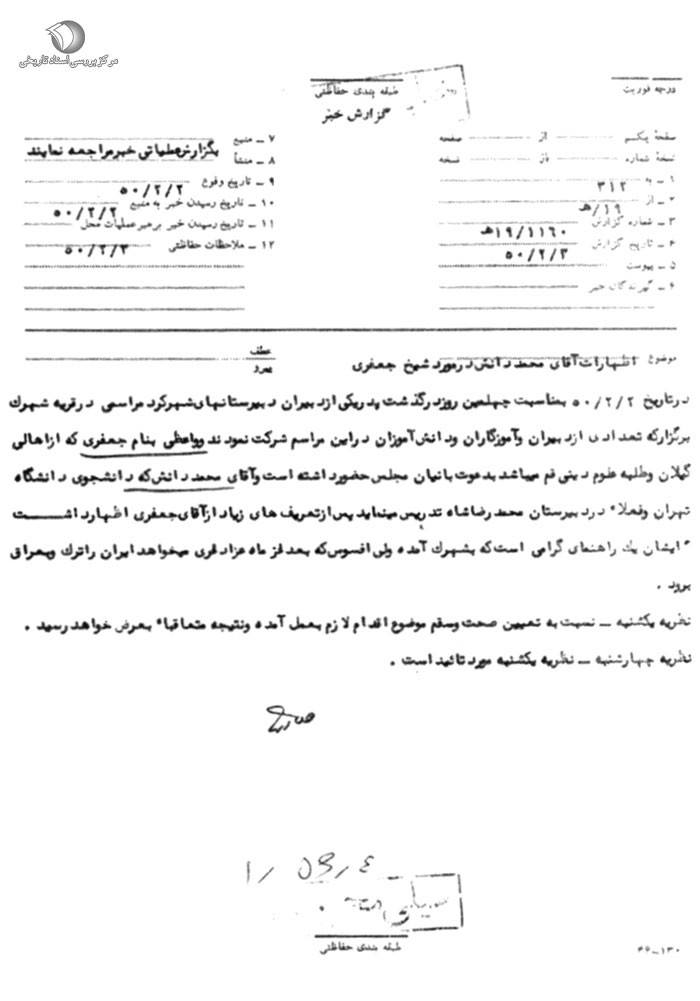 مرکز بررسی اسناد تاریخی
درجه فوریت
طبقه بندی حفاظتی
گزارش خبر
صفحهٔ یکم از صفحه
نسخهٔ شماره از نسخه
۱ ــ به ۳۱۲
۲ ــ از ۱۹/هـ
۳ ــ شماره گزارش ۱۹/۱۱۶۰هـ
۴ ــ تاریخ گزارش ۵۰/۲/۳
۵ ــ پیوست
۶ ــ گیرندگان خبر
۷ ــ منبع
۸ ــ منشأ
بگزارش عملیاتی خبر مراجعه نمایند
۹ ــ تاریخ وقوع ۵۰/۲/۲
۱۰ ــ تاریخ رسیدن خبر به منبع ۵۰/۲/۲
۱۱ ــ تاریخ رسیدن خبر برهبر عملیات محل
۱۲ ــ ملاحظات حفاظتی ۵۰/۲/۳
عطف
پیرو
موضوع اظهارات آقای محمد دانش در مورد شیخ جعفری
در تاریخ ۵۰/۲/۲ بمناسبت چهلمین روز درگذشت پدر یکی از دبیران دبیرستانهای شهرکرد مراسمی در قریه شهرک
برگزار که تعدادی از دبیران وآموزگاران ودانش‌آموزان در این مراسم شرکت نمودند وواعظی بنام جعفری که از اهالی
گیلان وطلبه علوم دینی قم میباشد بدعوت بانیان مجلس حضور داشته است وآقای محمد دانش که دانشجوی دانشگاه
تهران وفعلاً در دبیرستان محمد رضاشاه تدریس مینماید پس از تعریف های زیاد از آقای جعفری اظهار داشـــت
" ایشان یک راهنمای گرامی است که بشهرک آمده ولی افسوس که بعد از ماه عزاداری میخواهد ایران را ترک وبعراق
برود .
نظریه یکشنبه ــ نسبت به تعیین صحت وسقم موضوع اقدام لازم بعمل آمده ونتیجه متعاقباً بعرض خواهد رسید .
نظریه چهارشنبه ــ نظریه یکشنبه مورد تائید است .
طبقه بندی حفاظتی
۴۶ــ۱۳۰